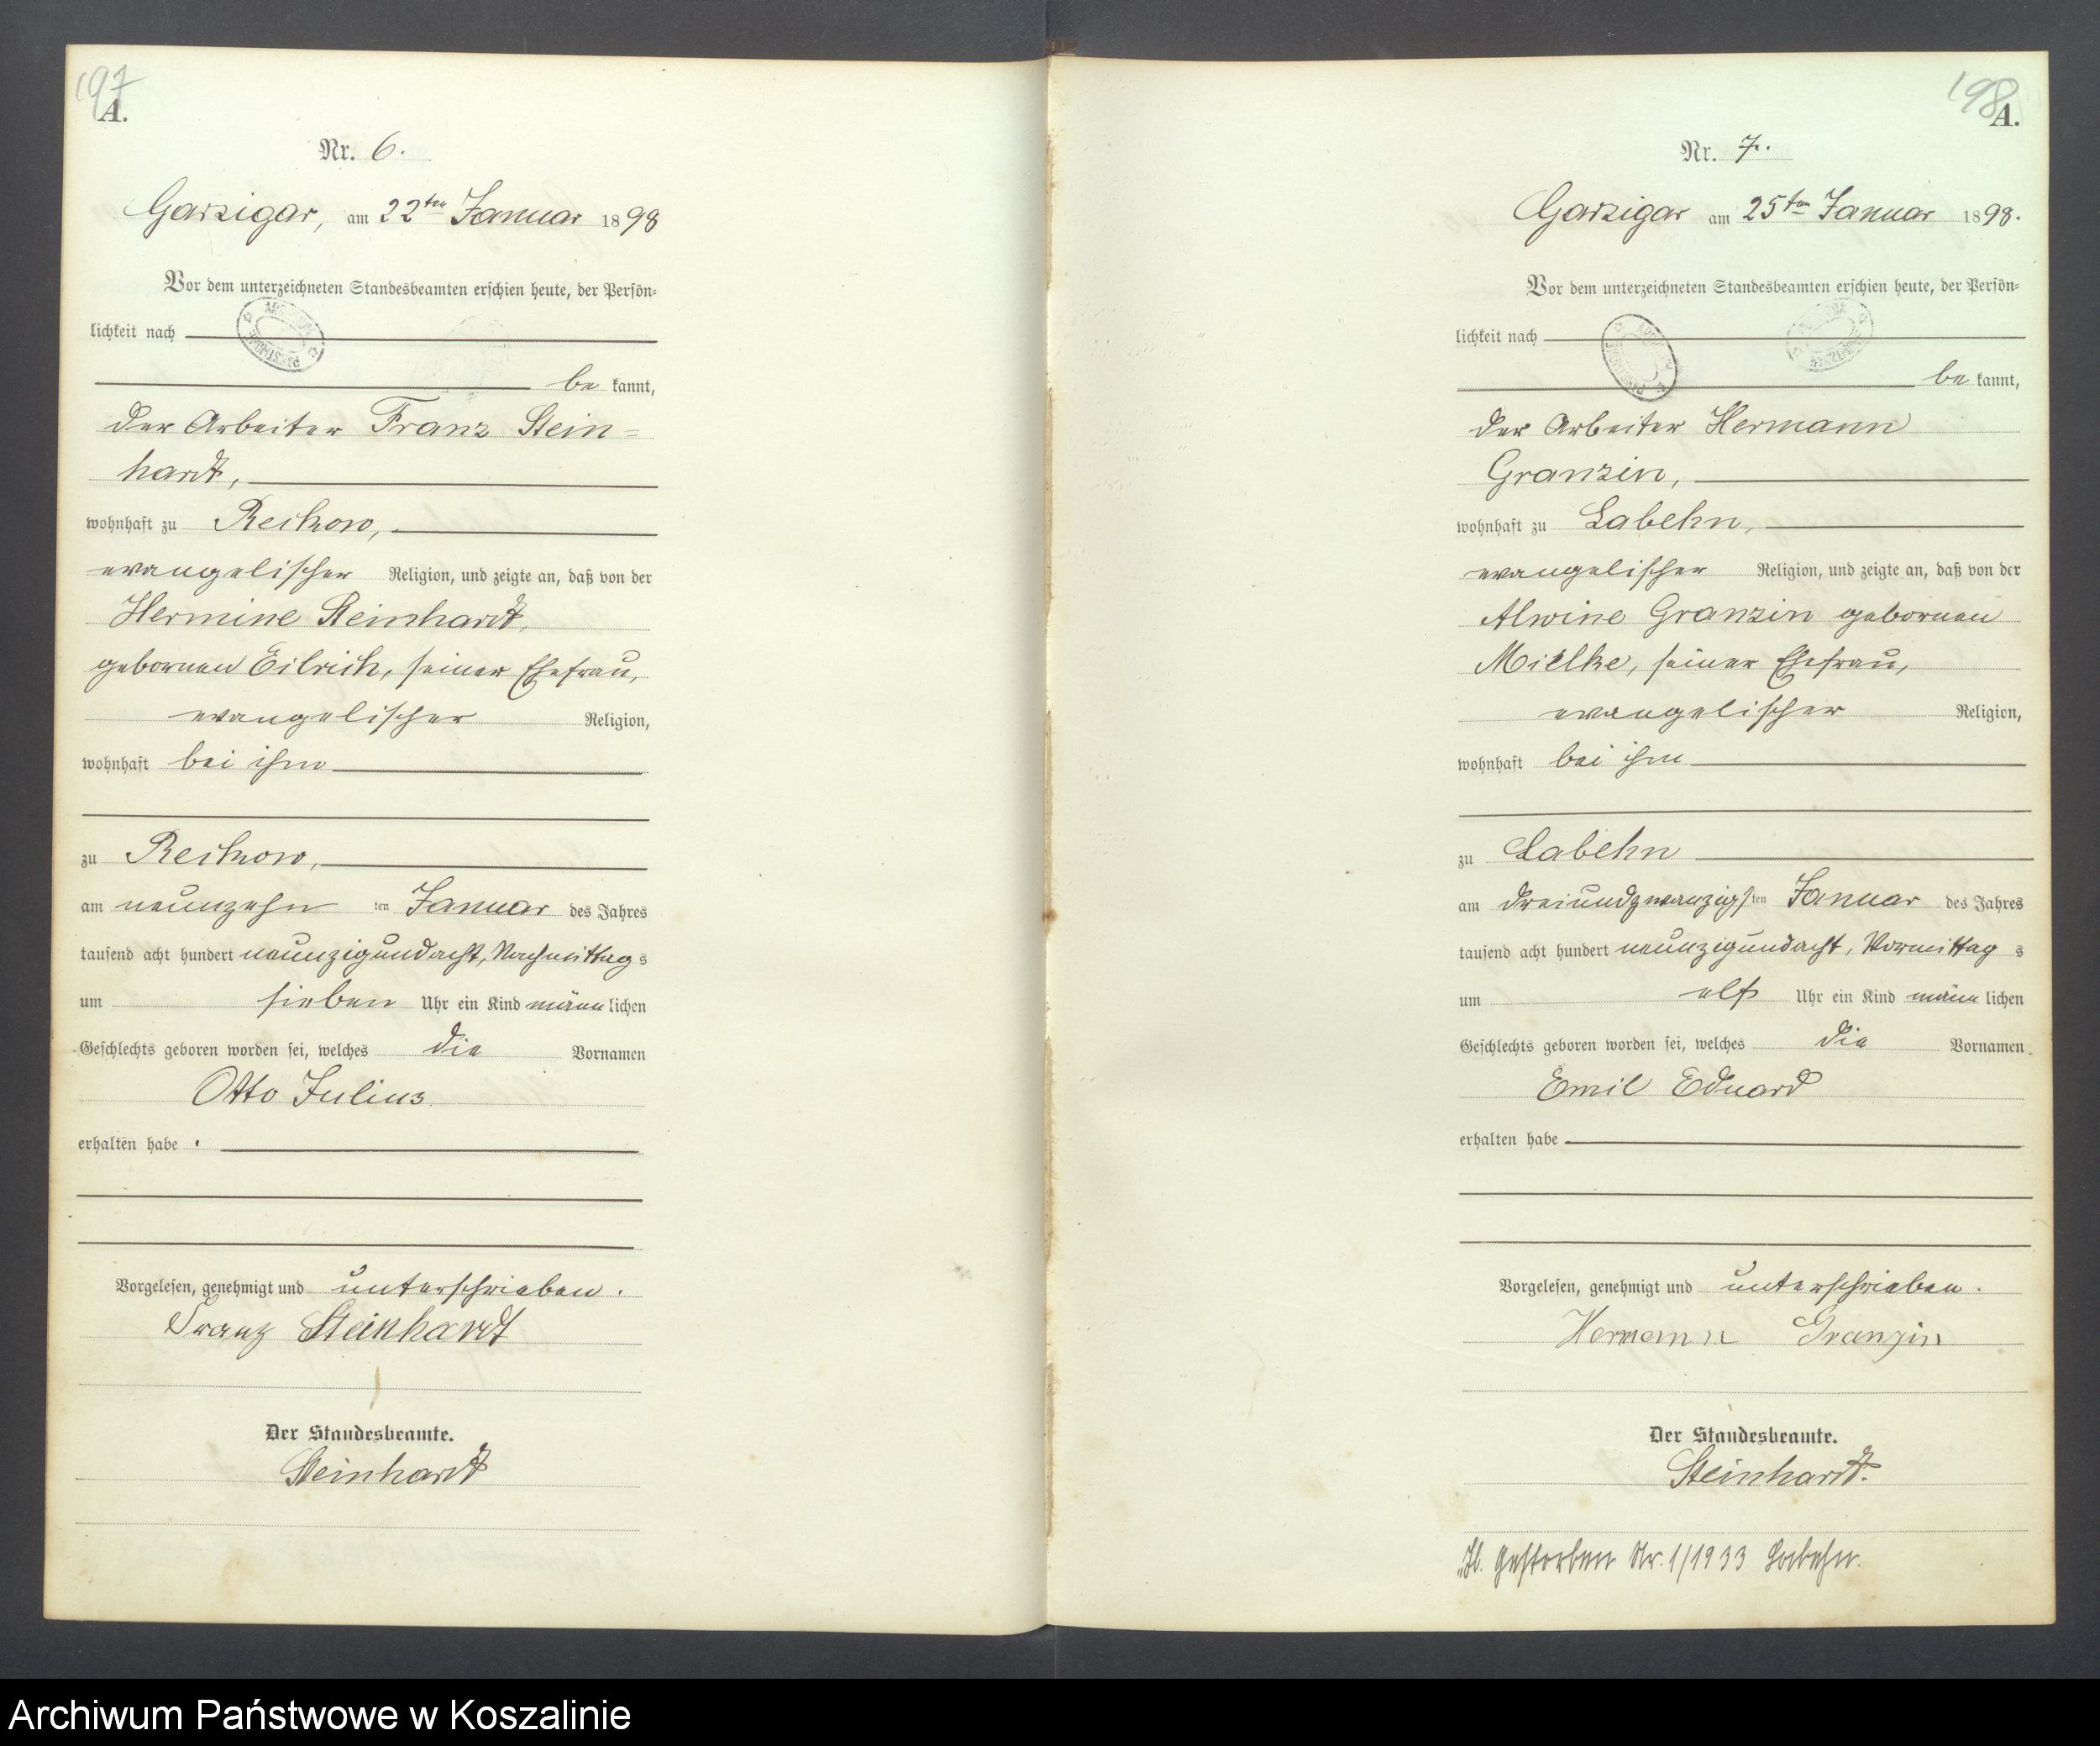 197
A.
Nr. 6.
Garzigar, am 22ten Januar 1898
Vor dem unterzeichneten Standesbeamten erschien heute, der Persön=
lichkeit nach
be kannt,
der Arbeiter Franz Stein=
hardt,
wohnhaft zu Reckow,
evangelischer Religion, und zeigte an, daß von der
Hermine Steinhardt,
gebornen Eilrich, seiner Ehefrau,
evangelischer Religion,
wohnhaft bei ihm
zu Reckow,
am neunzehn ten Januar des Jahres
tausend acht hundert neunzigundacht, Nachmittag s
um sieben Uhr ein Kind männ lichen
Geschlechts geboren worden sei, welches die Vornamen
Otto Julius
erhalten habe .
Vorgelesen, genehmigt und unterschrieben.
Franz Steinhardt
Der Standesbeamte.
Steinhardt
198
A.
Nr. 7.
Garzigar am 25ten Januar 1898.
Vor dem unterzeichneten Standesbeamten erschien heute, der Persön=
lichkeit nach
be kannt,
der Arbeiter Hermann
Granzin,
wohnhaft zu Labehn,
evangelischer Religion, und zeigte an, daß von der
Alwine Granzin gebornen
Mielke, seiner Ehefrau,
evangelischer Religion,
wohnhaft bei ihm
zu Labehn
am dreiundzwanzigs ten Januar des Jahres
tausend acht hundert neunzigundacht, Vormittag s
um elf Uhr ein Kind männ lichen
Geschlechts geboren worden sei, welches die Vornamen
Emil Eduard
erhalten habe
Vorgelesen, genehmigt und unterschrieben.
Hermann Granzin
Der Standesbeamte.
Steinhardt.
gestorben Nr. 1/1933 Labehn.
Archiwum Państwowe w Koszalinie